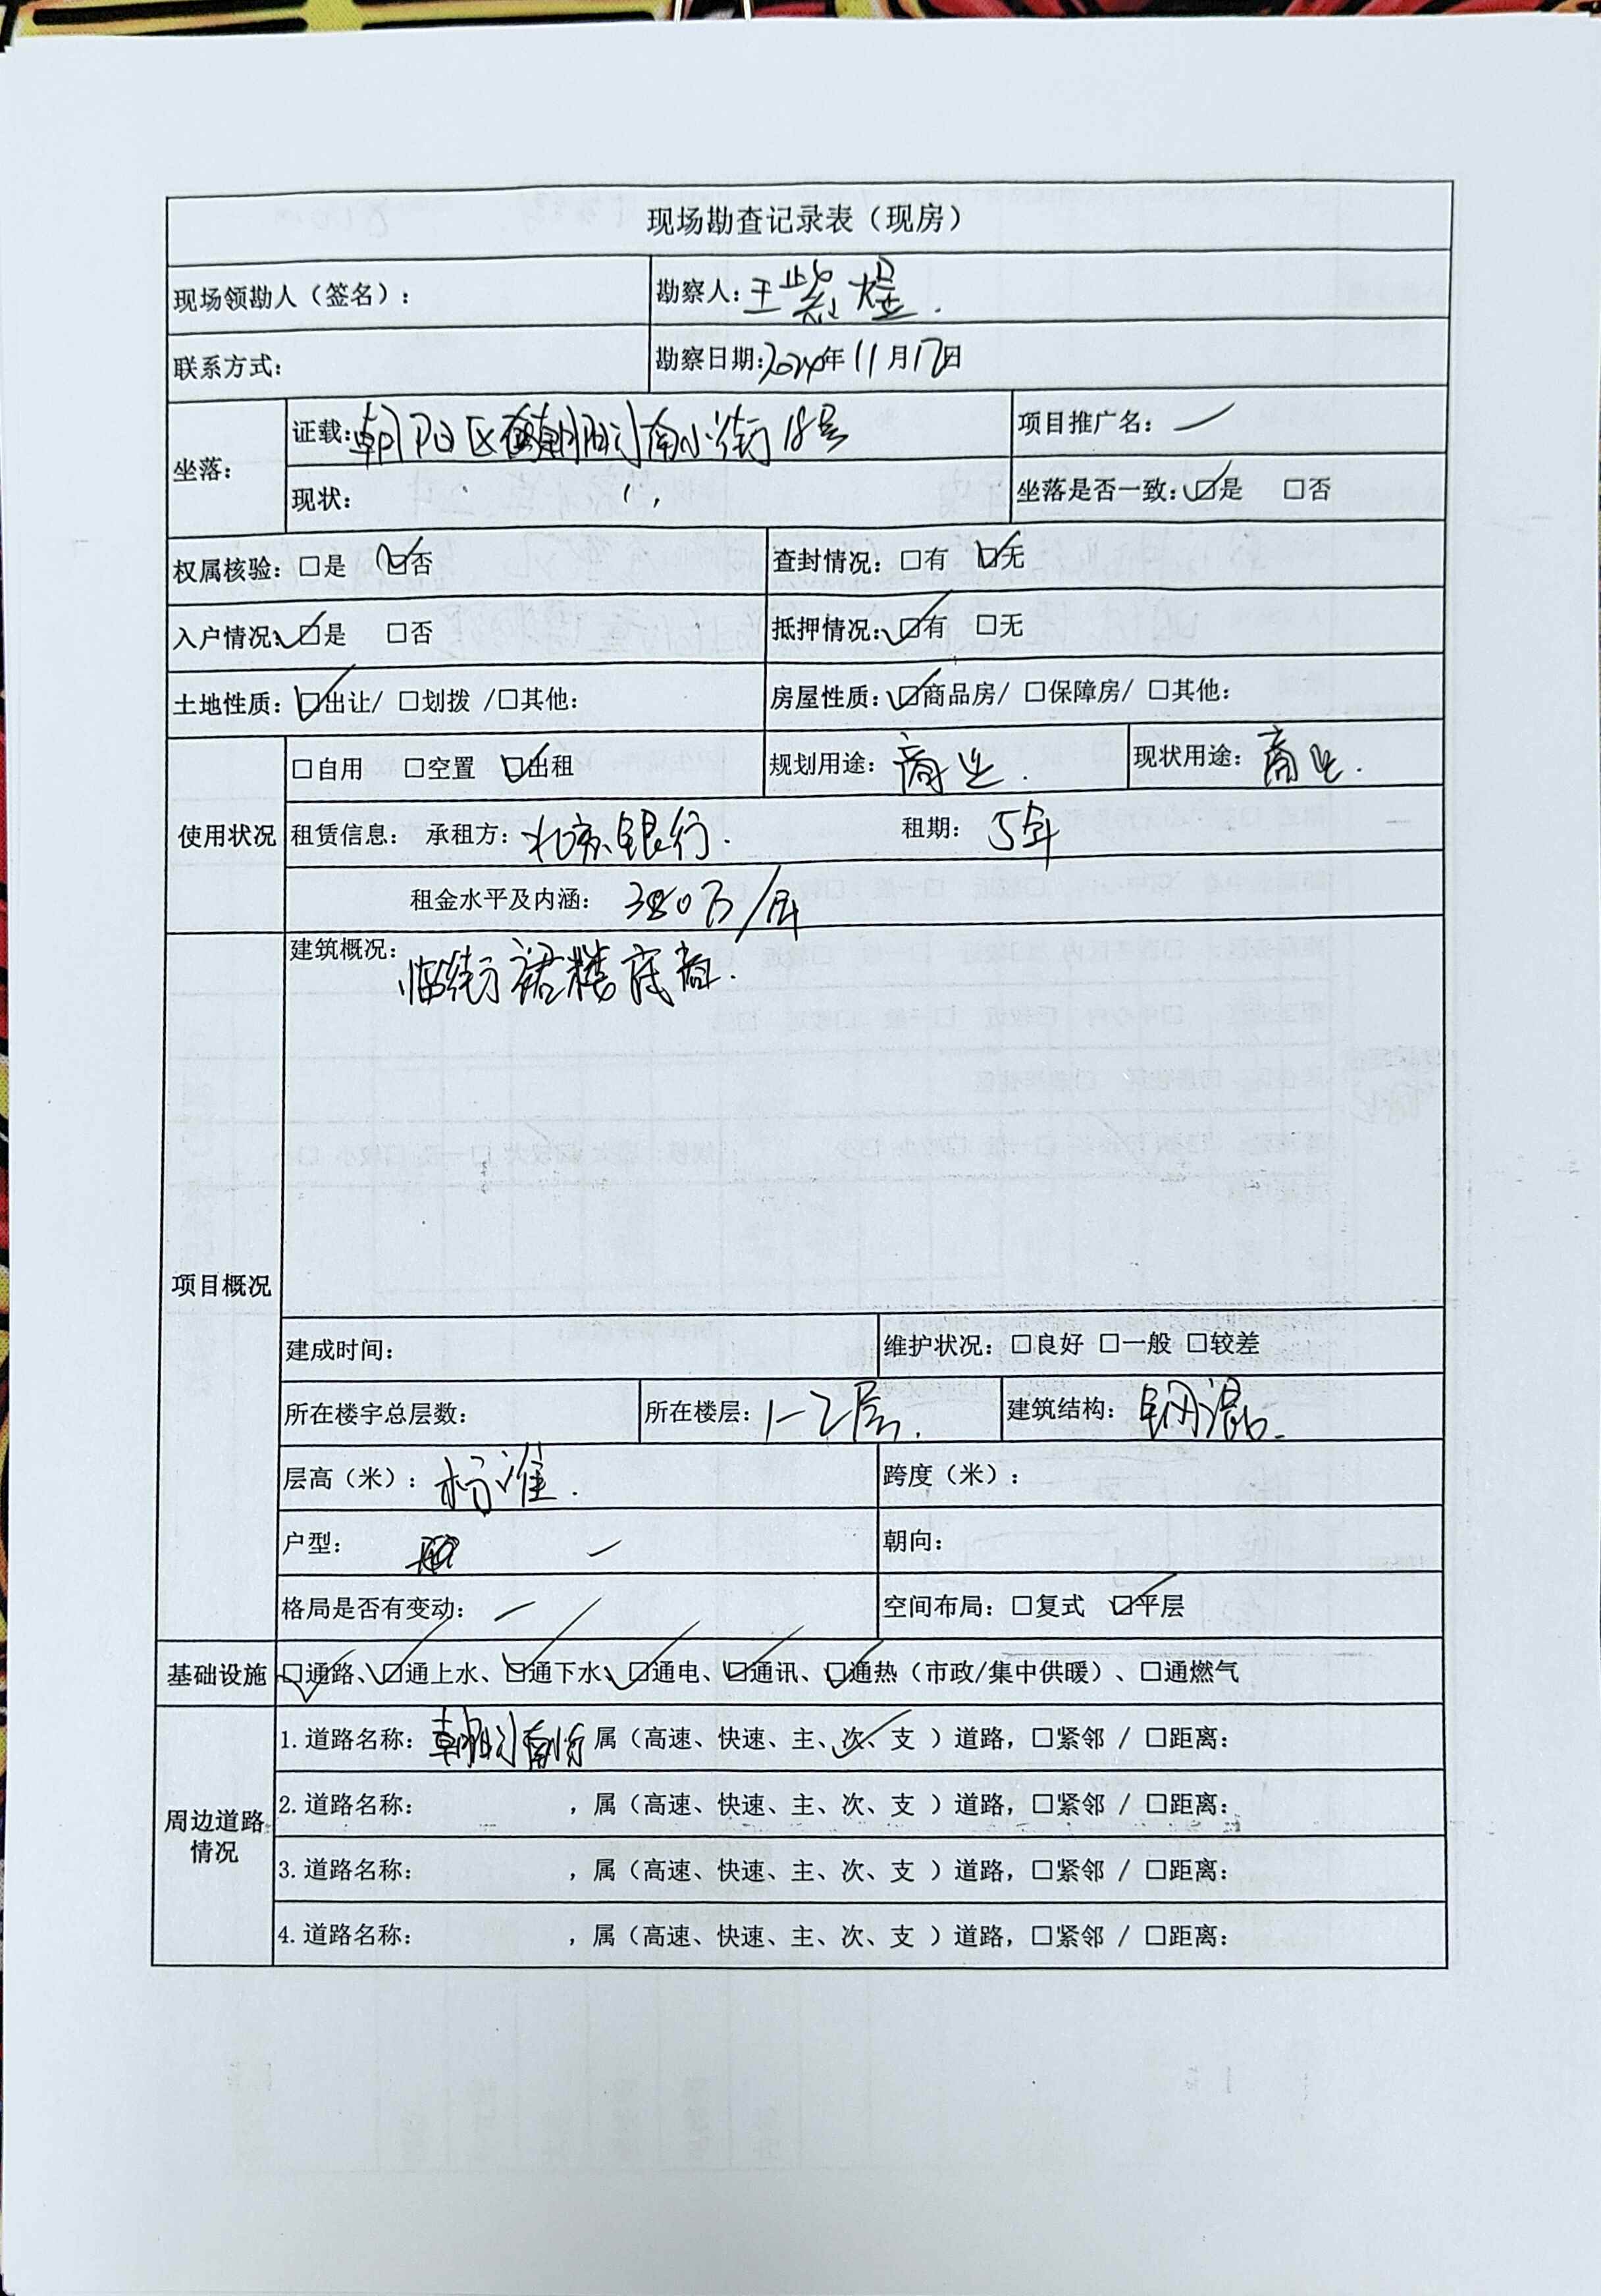 现场勘查记录表（现房）
现场领勘人（签名）： 勘察人：王紫煜.
联系方式： 勘察日期：2024年11月17日
坐落： 证载：朝阳区朝阳门南小街18号 项目推广名：—
现状： 〃 坐落是否一致：☑是 □否
权属核验：□是 ☑否 查封情况：□有 ☑无
入户情况：☑是 □否 抵押情况：☑有 □无
土地性质：☑出让/ □划拨 /□其他： 房屋性质：☑商品房/ □保障房/ □其他：
使用状况 □自用 □空置 ☑出租 规划用途：商业. 现状用途：商业.
租赁信息： 承租方：北京银行. 租期：5年
租金水平及内涵：380万/年
项目概况 建筑概况：临街裙楼底商.
建成时间： 维护状况：□良好 □一般 □较差
所在楼宇总层数： 所在楼层：1-2层. 建筑结构：钢混.
层高（米）：标准. 跨度（米）：
户型： — 朝向：
格局是否有变动：— 空间布局：□复式 ☑平层
基础设施 ☑通路、☑通上水、☑通下水、☑通电、☑通讯、☑通热（市政/集中供暖）、□通燃气
周边道路情况 1.道路名称：朝阳门南小街 属（高速、快速、主、次✓、支 ）道路，□紧邻 / □距离：
2.道路名称： ，属（高速、快速、主、次、支 ）道路，□紧邻 / □距离：
3.道路名称： ，属（高速、快速、主、次、支 ）道路，□紧邻 / □距离：
4.道路名称： ，属（高速、快速、主、次、支 ）道路，□紧邻 / □距离：